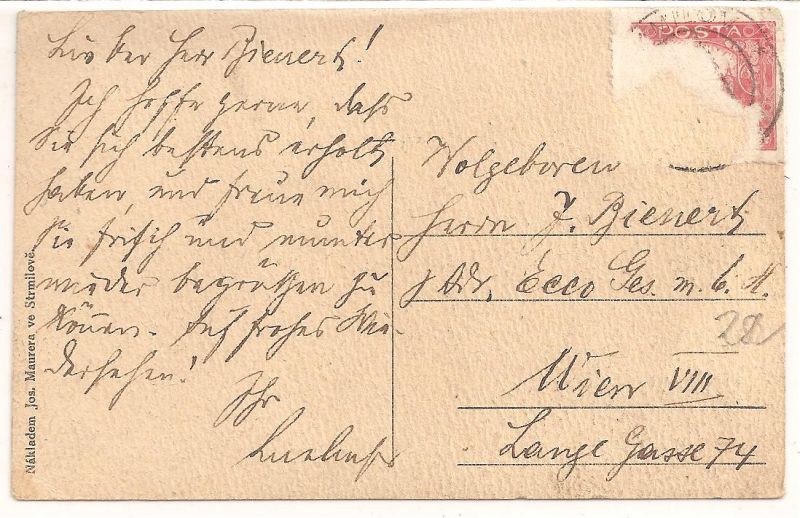 Lieber Herr Bienert!
Ich hoffe gerne, dass
Sie sich bestens erholt
haben, und freue mich
Sie frisch und munter
wieder begrüßen zu
können. Auf frohes Wie-
dersehen!
Ihr
POSTA
Wolgeboren
Herrn J. Bienert
p Adr. Ecco Ges. m. b. H.
28
Wien VIII
Lange Gasse 74
Nákladem Jos. Maurera ve Strmilově.